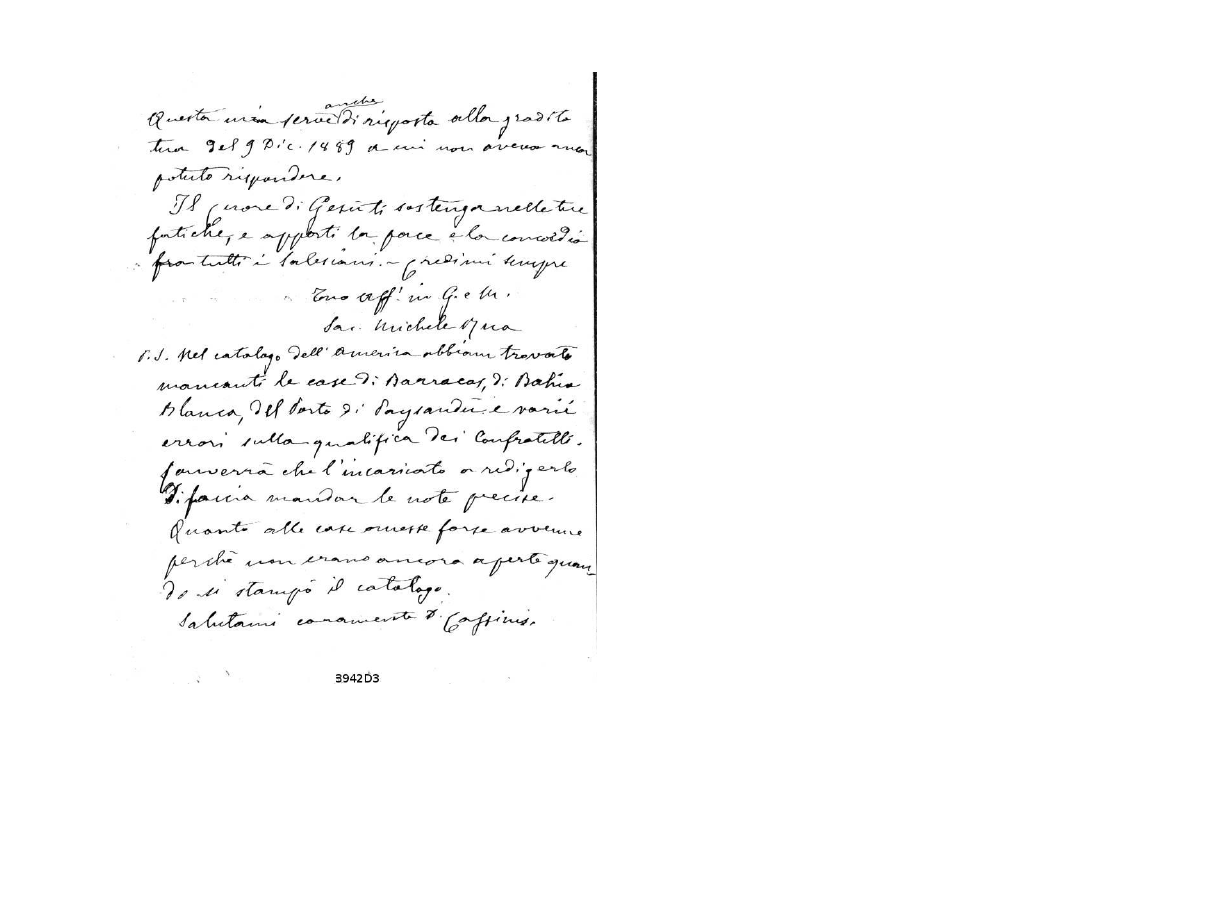 anche
Questa mia serve di risposta alla gradita
tua del 9 Dic. 1889 a cui non aveva ancor
potuto rispondere.
Il Cuore di Gesù ti sostenga nelle tue
fatiche, e apporti la pace e la concordia
fra tutti i Salesiani. ~ Credimi sempre
Tuo aff.' in G. e M.
Sac. Michele Rua
P.S. Nel catalogo dell'America abbiam trovato
mancanti le case di Barracas, di Bahia
Blanca, del Porto di Paysandù e varii
errori sulla qualifica dei Confratelli.
Converrà che l'incaricato a redigerlo
si faccia mandar le note precise.
Quanto alle case omesse forse avvenne
perchè non erano ancora aperte quan-
do si stampò il catalogo.
Salutami caramente D. Cassinis.
3942D3